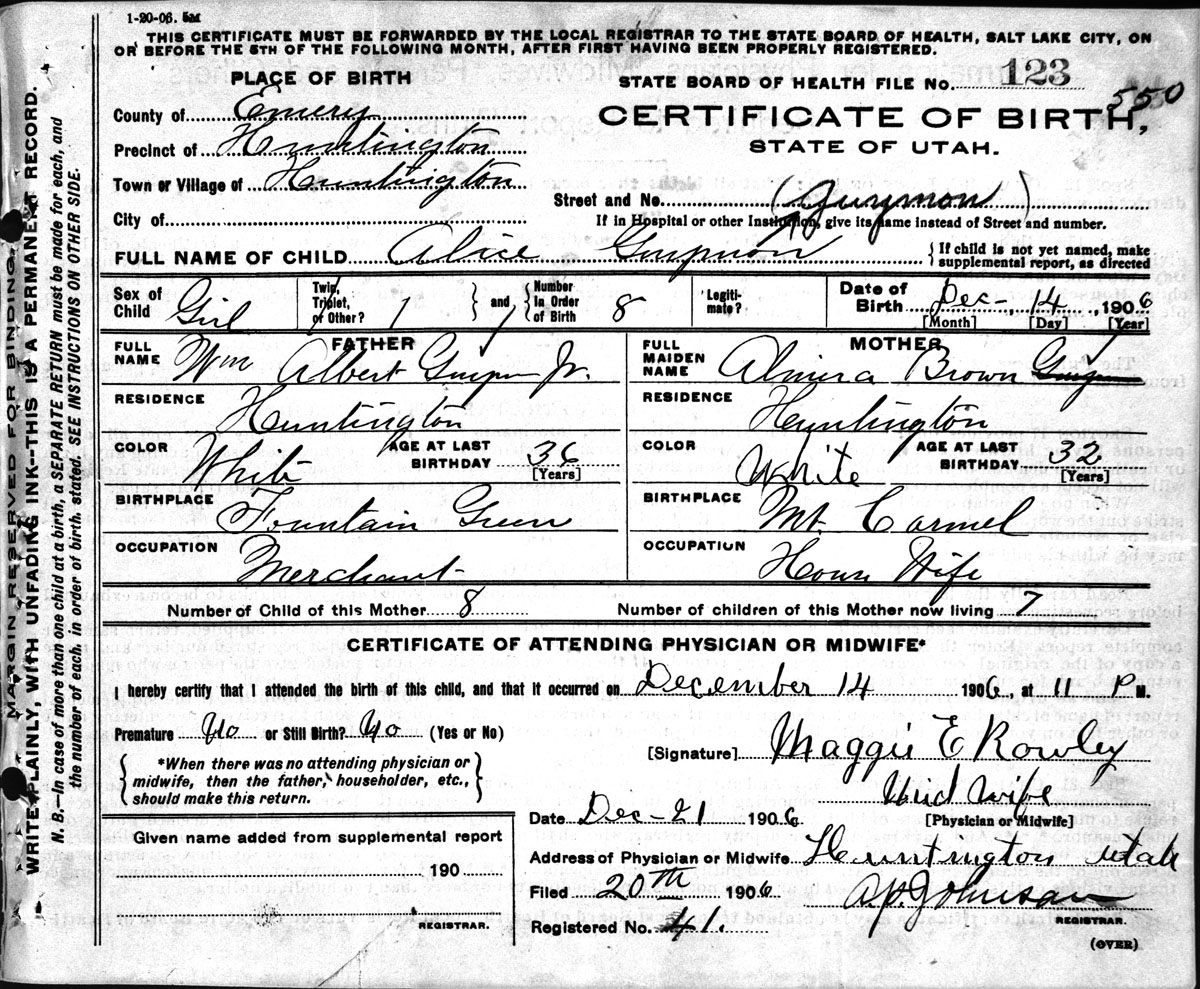 1-20-06. 5M
THIS CERTIFICATE MUST BE FORWARDED BY THE LOCAL REGISTRAR TO THE STATE BOARD OF HEALTH, SALT LAKE CITY, ON
OR BEFORE THE 5TH OF THE FOLLOWING MONTH, AFTER FIRST HAVING BEEN PROPERLY REGISTERED.
PLACE OF BIRTH
STATE BOARD OF HEALTH FILE NO. 123
550
County of Emery
CERTIFICATE OF BIRTH,
Precinct of Huntington
STATE OF UTAH.
Town or Village of Huntington
Street and No. (Gurymon)
City of
If in Hospital or other Institution, give its name instead of Street and number.
FULL NAME OF CHILD Alice
{If child is not yet named, make
supplemental report, as directed
Sex of Child Girl
Twin, Triplet, or Other? 1 } and { Number in Order of Birth 8
Legiti-mate?
Date of Birth Dec- 14, 1906
[Month] [Day] [Year]
FATHER
MOTHER
FULL NAME Wm Albert Jr.
FULL MAIDEN NAME Almira Brown
RESIDENCE Huntington
RESIDENCE Huntington
COLOR White
AGE AT LAST BIRTHDAY 36 [Years]
COLOR White
AGE AT LAST BIRTHDAY 32 [Years]
BIRTHPLACE Fountain Green
BIRTHPLACE Mt. Carmel
OCCUPATION Merchant
OCCUPATION Hous Wife
Number of Child of this Mother 8
Number of children of this Mother now living 7
CERTIFICATE OF ATTENDING PHYSICIAN OR MIDWIFE*
I hereby certify that I attended the birth of this child, and that it occurred on December 14 1906, at 11 P M.
Premature No or Still Birth? No (Yes or No)
[Signature] Maggie E Rowley
*When there was no attending physician or
midwife, then the father, householder, etc.,
should make this return.
Mid Wife
[Physician or Midwife]
Date Dec-21 1906
Given name added from supplemental report
190
REGISTRAR.
Address of Physician or Midwife Huntington Utah
Filed 20th 1906
A.P. Johnson
REGISTRAR.
Registered No. 41.
(OVER)
MARGIN RESERVED FOR BINDING.
WRITE PLAINLY, WITH UNFADING INK--THIS IS A PERMANENT RECORD.
N. B.--In case of more than one child at a birth, a SEPARATE RETURN must be made for each, and
the number of each, in order of birth, stated. SEE INSTRUCTIONS ON OTHER SIDE.